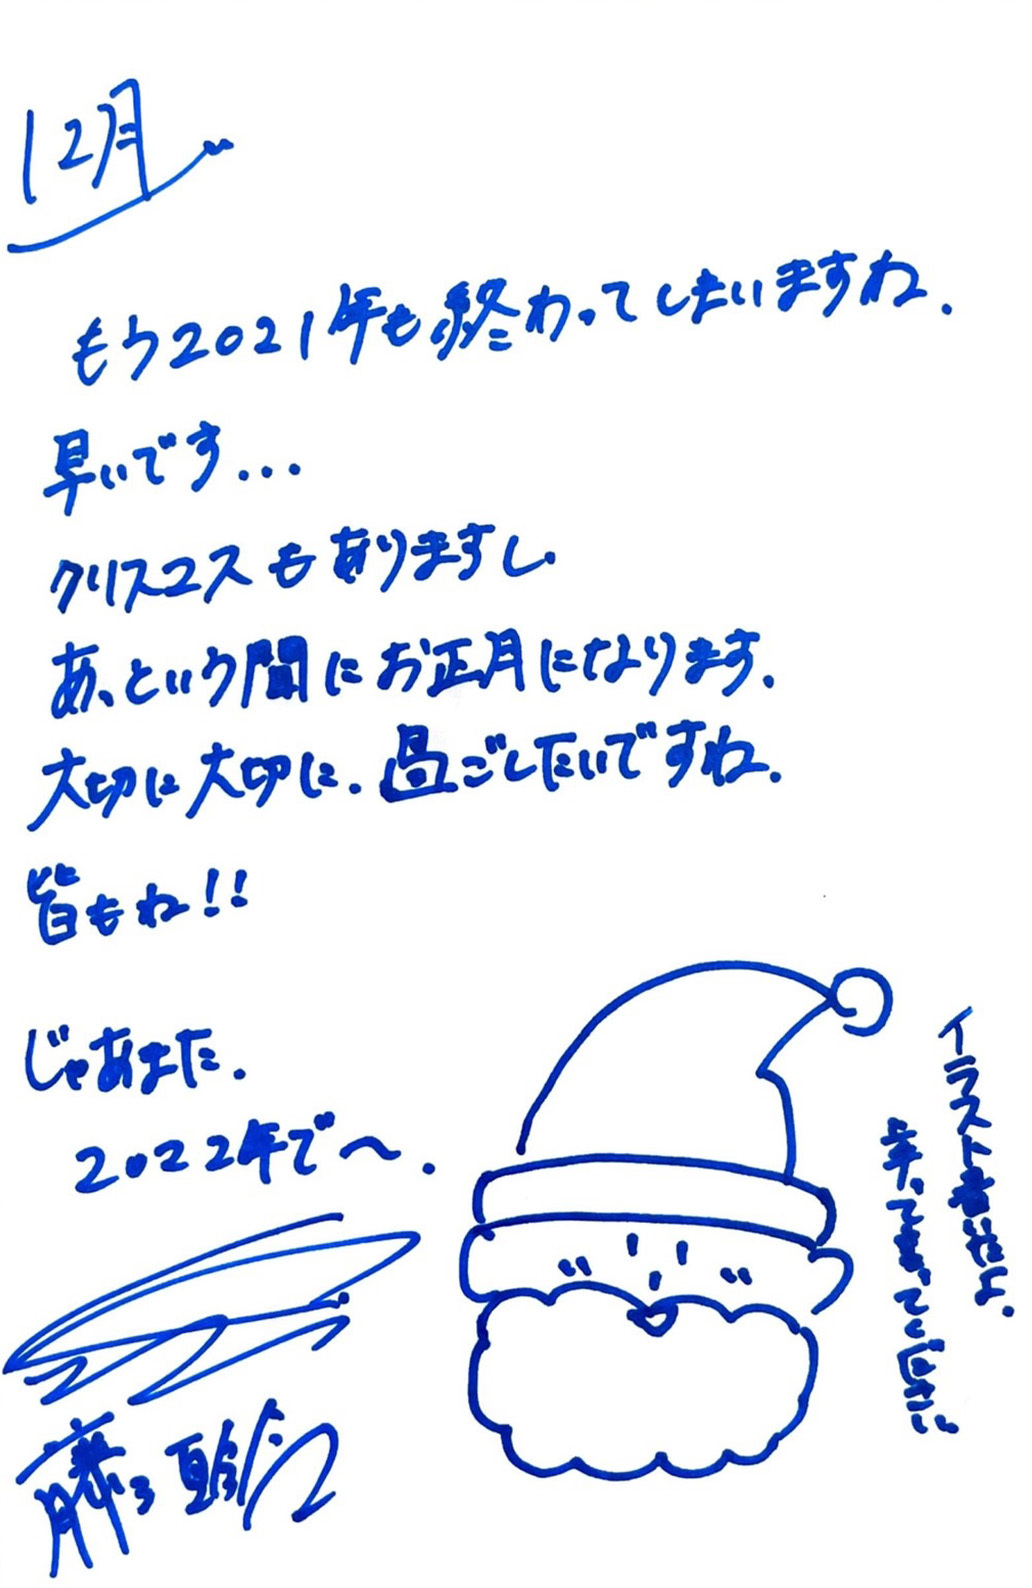 12月
もう2021年も終わってしまいますね.
早いです...
クリスマスもありますし.
あっという間にお正月になります.
大切に大切に.過ごしたいですね.
皆もね!!
じゃあまた.
2022年で〜.
イラスト者だよ.